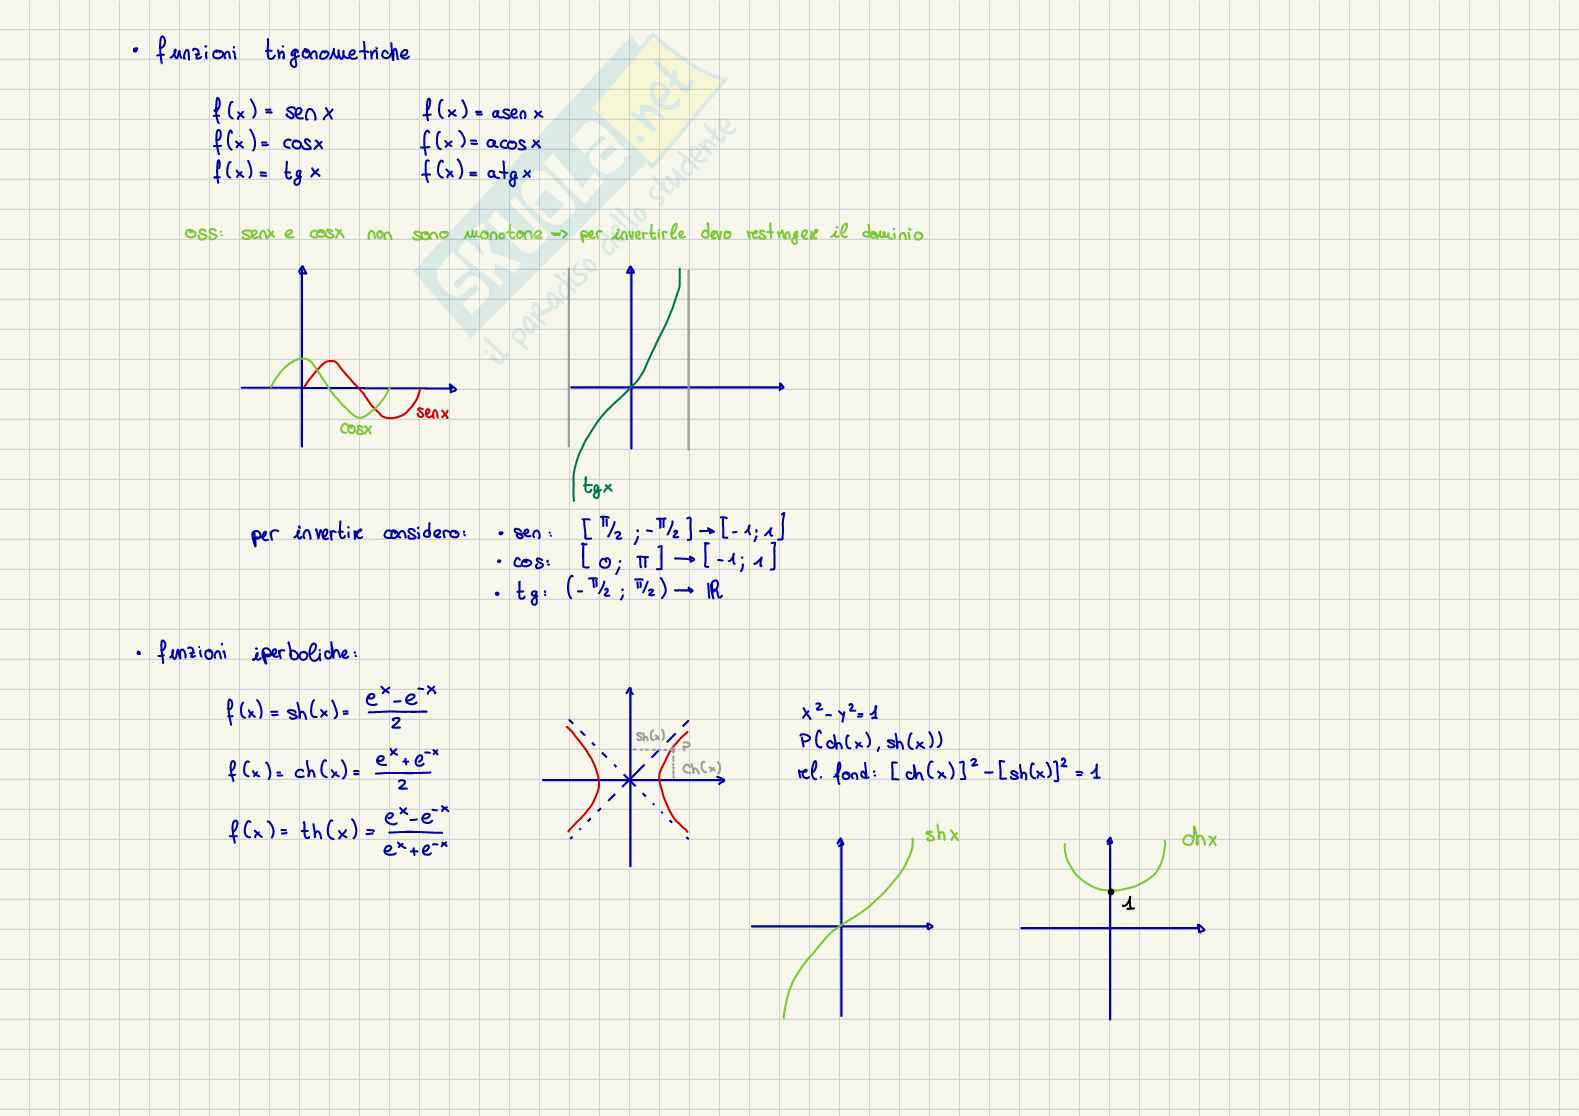 • funzioni trigonometriche
f(x) = sen x    f(x) = asen x
f(x) = cosx    f(x) = acos x
f(x) = tg x    f(x) = atg x
oss: senx e cosx non sono monotone -> per invertirle devo restringere il dominio
senx
cosx
tgx
per invertire considero: • sen: [π/2 ; -π/2] → [-1; 1]
• cos: [0; π] → [-1; 1]
• tg: (-π/2 ; π/2) → ℝ
• funzioni iperboliche:
f(x) = sh(x) = (e^x - e^-x)/2
f(x) = ch(x) = (e^x + e^-x)/2
f(x) = th(x) = (e^x - e^-x)/(e^x + e^-x)
sh(x)
P
ch(x)
x² - y² = 1
P(ch(x), sh(x))
rel. fond: [ch(x)]² - [sh(x)]² = 1
shx
chx
1
SKUOLA.net
il paradiso dello studente